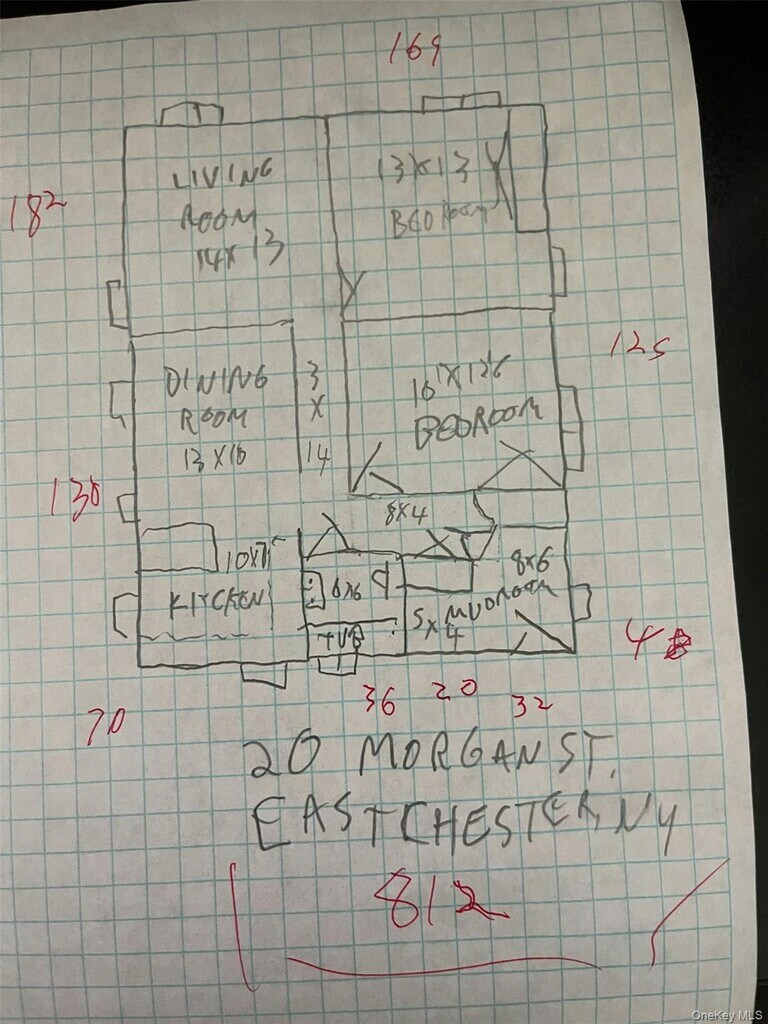 169
LIVING
ROOM
14X13
13X13
BEDROOM
182
125
DINING
ROOM
13X10
3
X
14
BEDROOM
130
8X4
KITCHEN
6X6
8X6
MUDROOM
5X4
TUB
4
70
36
20
32
20 MORGAN ST.
EASTCHESTER, NY
812
OneKey MLS